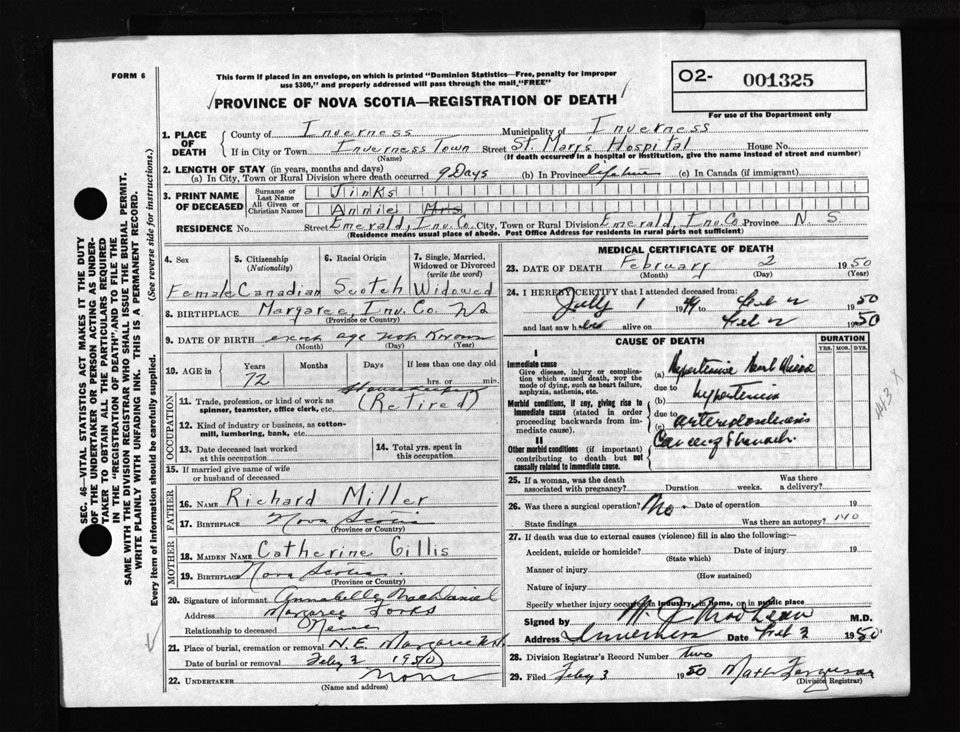 FORM 6
This form if placed in an envelope, on which is printed "Dominion Statistics—Free, penalty for improper
use $300," and properly addressed will pass through the mail, "FREE"
O2- 001325
For use of the Department only
PROVINCE OF NOVA SCOTIA—REGISTRATION OF DEATH
SEC. 46—VITAL STATISTICS ACT MAKES IT THE DUTY
OF THE UNDERTAKER OR PERSON ACTING AS UNDER-
TAKER TO OBTAIN ALL THE PARTICULARS REQUIRED
IN THE "REGISTRATION OF DEATH" AND TO FILE THE
SAME WITH THE DIVISION REGISTRAR WHO SHALL ISSUE THE BURIAL PERMIT.
WRITE PLAINLY WITH UNFADING INK. THIS IS A PERMANENT RECORD.
Every item of information should be carefully supplied. (See reverse side for instructions.)
1. PLACE OF DEATH
County of Inverness Municipality of Inverness
If in City or Town Inverness Town Street St. Marys Hospital House No.
(Name) (If death occurred in a hospital or institution, give the name instead of street and number)
2. LENGTH OF STAY (in years, months and days)
(a) In City, Town or Rural Division where death occurred 9 Days (b) In Province lifetime (c) In Canada (if immigrant)
3. PRINT NAME OF DECEASED
Surname or Last Name Jinks
All Given or Christian Names Annie Mrs
RESIDENCE No. Street Emerald, Inv. Co. City, Town or Rural Division Emerald, Inv. Co Province N. S
(Residence means usual place of abode. Post Office Address for residents in rural parts not sufficient)
4. Sex
Female
5. Citizenship (Nationality)
Canadian
6. Racial Origin
Scotch
7. Single, Married, Widowed or Divorced (write the word)
Widowed
8. BIRTHPLACE Margaree, Inv. Co. NS
(Province or Country)
9. DATE OF BIRTH exact age not known
(Month) (Day) (Year)
10. AGE in Years 72 Months Days If less than one day old hrs. or min.
OCCUPATION
11. Trade, profession, or kind of work as spinner, teamster, office clerk, etc. Housekeeper (Retired)
12. Kind of industry or business, as cotton-mill, lumbering, bank, etc.
13. Date deceased last worked at this occupation
14. Total yrs. spent in this occupation
15. If married give name of wife or husband of deceased
FATHER
16. NAME Richard Miller
17. BIRTHPLACE Nova Scotia
(Province or Country)
MOTHER
18. MAIDEN NAME Catherine Gillis
19. BIRTHPLACE Nova Scotia
(Province or Country)
20. Signature of informant Annabelle MacDaniel
Address Margaree Forks
Relationship to deceased Niece
21. Place of burial, cremation or removal N.E. Margaree
Date of burial or removal Feby 3 1950
22. UNDERTAKER None
(Name and address)
MEDICAL CERTIFICATE OF DEATH
23. DATE OF DEATH February 2 1950
(Month) (Day) (Year)
24. I HEREBY CERTIFY that I attended deceased from
July 1 to Feb 2 1950
and last saw her alive on Feb 2 1950
CAUSE OF DEATH
DURATION
YRS. MOS. DYS.
I
Immediate cause
Give disease, injury or complication which caused death, not the mode of dying, such as heart failure, asphyxia, asthenia, etc.
(a) Hypertensive Heart Disease
due to
Morbid conditions, if any, giving rise to immediate cause (stated in order proceeding backwards from immediate cause).
(b) hypertension
due to
(c) arteriosclerosis
II
Other morbid conditions (if important) contributing to death but not causally related to immediate cause.
Cancer Stomach.
443
25. If a woman, was the death associated with pregnancy? Duration weeks. Was there a delivery?
26. Was there a surgical operation? No. Date of operation 19
State findings Was there an autopsy? no
27. If death was due to external causes (violence) fill in also the following:—
Accident, suicide or homicide? Date of injury 19
(State which)
Manner of injury
(How sustained)
Nature of injury
Specify whether injury occurred in industry, in home, or in public place
Signed by M.D.
Address Inverness Date Feb 3 1950
28. Division Registrar's Record Number two
29. Filed Feby 3 1950 Ferguson
(Division Registrar)